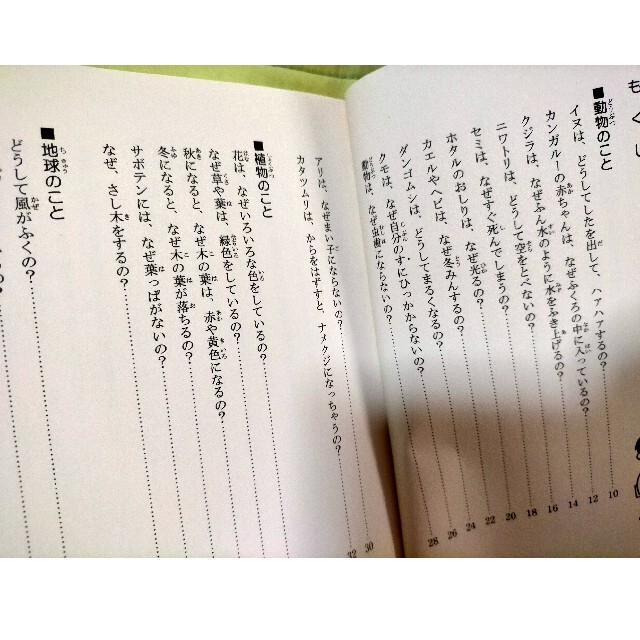 もくじ
■動物のこと
イヌは、どうしてしたを出して、ハアハアするの？ 10
カンガルーの赤ちゃんは、なぜふくろの中に入っているの？ 12
クジラは、なぜふん水のように水をふき上げるの？ 14
ニワトリは、どうして空をとべないの？ 16
セミは、なぜすぐ死んでしまうの？ 18
ホタルのおしりは、なぜ光るの？ 20
カエルやヘビは、なぜ冬みんするの？ 22
ダンゴムシは、どうしてまるくなるの？ 24
クモは、なぜ自分のすにひっかからないの？ 26
動物は、なぜ虫歯にならないの？ 28
アリは、なぜまい子にならないの？ 30
カタツムリは、からをはずすと、ナメクジになっちゃうの？ 32
■植物のこと
花は、なぜいろいろな色をしているの？
なぜ草や葉は、緑色をしているの？
秋になると、なぜ木の葉は、赤や黄色になるの？
冬になると、なぜ木の葉が落ちるの？
サボテンには、なぜ葉っぱがないの？
なぜ、さし木をするの？
■地球のこと
どうして風がふくの？